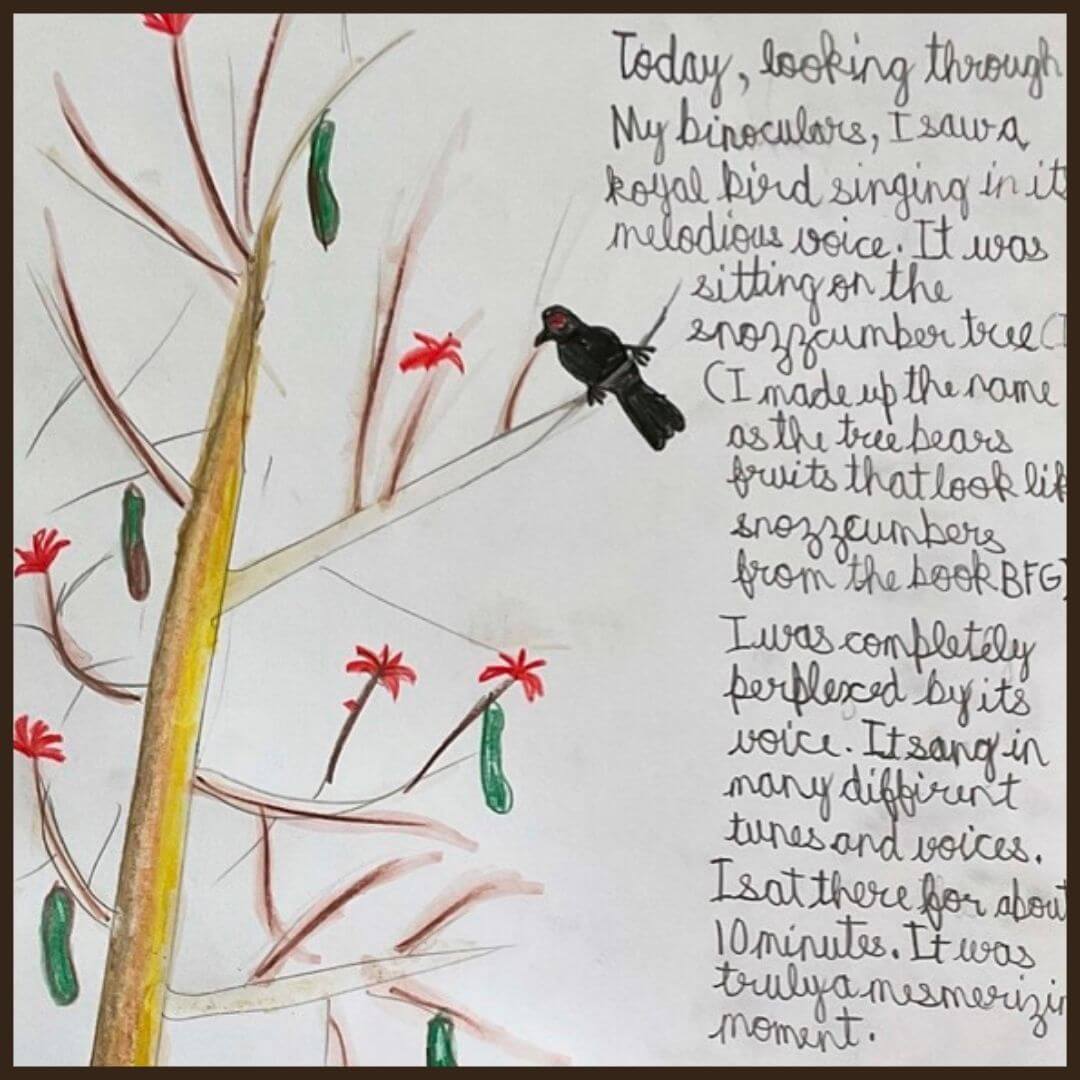 Today, looking through
My binoculars, I saw a
koyal bird singing in its
melodious voice. It was
sitting on the
snozzcumber tree (I
(I made up the name
as the tree bears
fruits that look lik
snozzcumbers
from the book BFG)
I was completely
perplexed by its
voice. It sang in
many diffirent
tunes and voices.
I sat there for about
10 minutes. It was
truly a mesmerizin
moment.